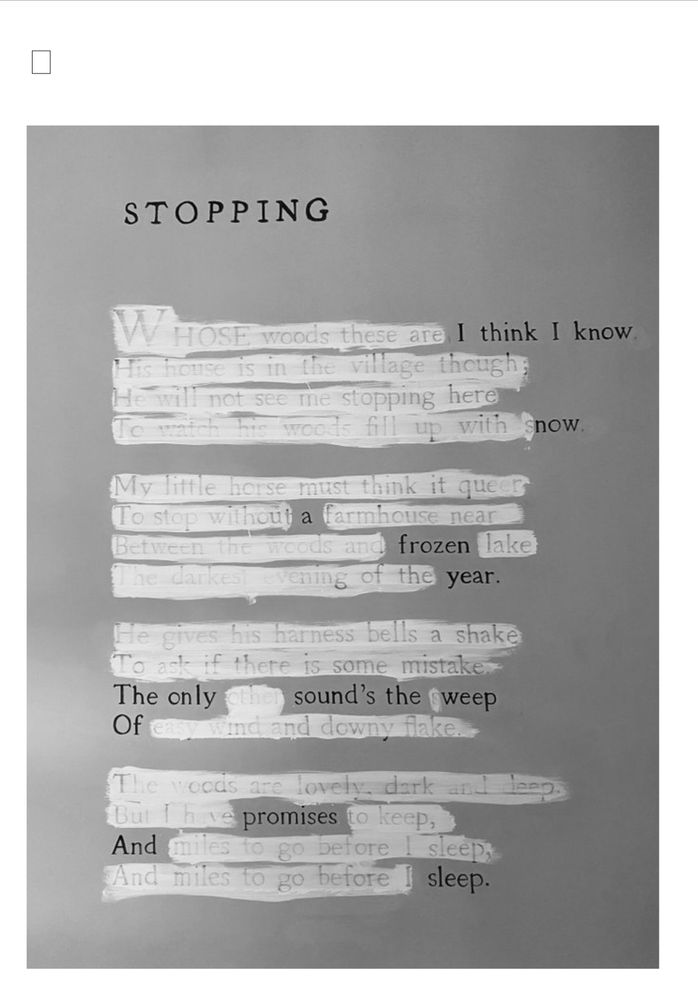 STOPPING
WHOSE woods these are I think I know.
His house is in the village though;
He will not see me stopping here
To watch his woods fill up with snow.
My little horse must think it queer
To stop without a farmhouse near
Between the woods and frozen lake
The darkest evening of the year.
He gives his harness bells a shake
To ask if there is some mistake.
The only other sound's the sweep
Of easy wind and downy flake.
The woods are lovely, dark and deep.
But I have promises to keep,
And miles to go before I sleep,
And miles to go before I sleep.